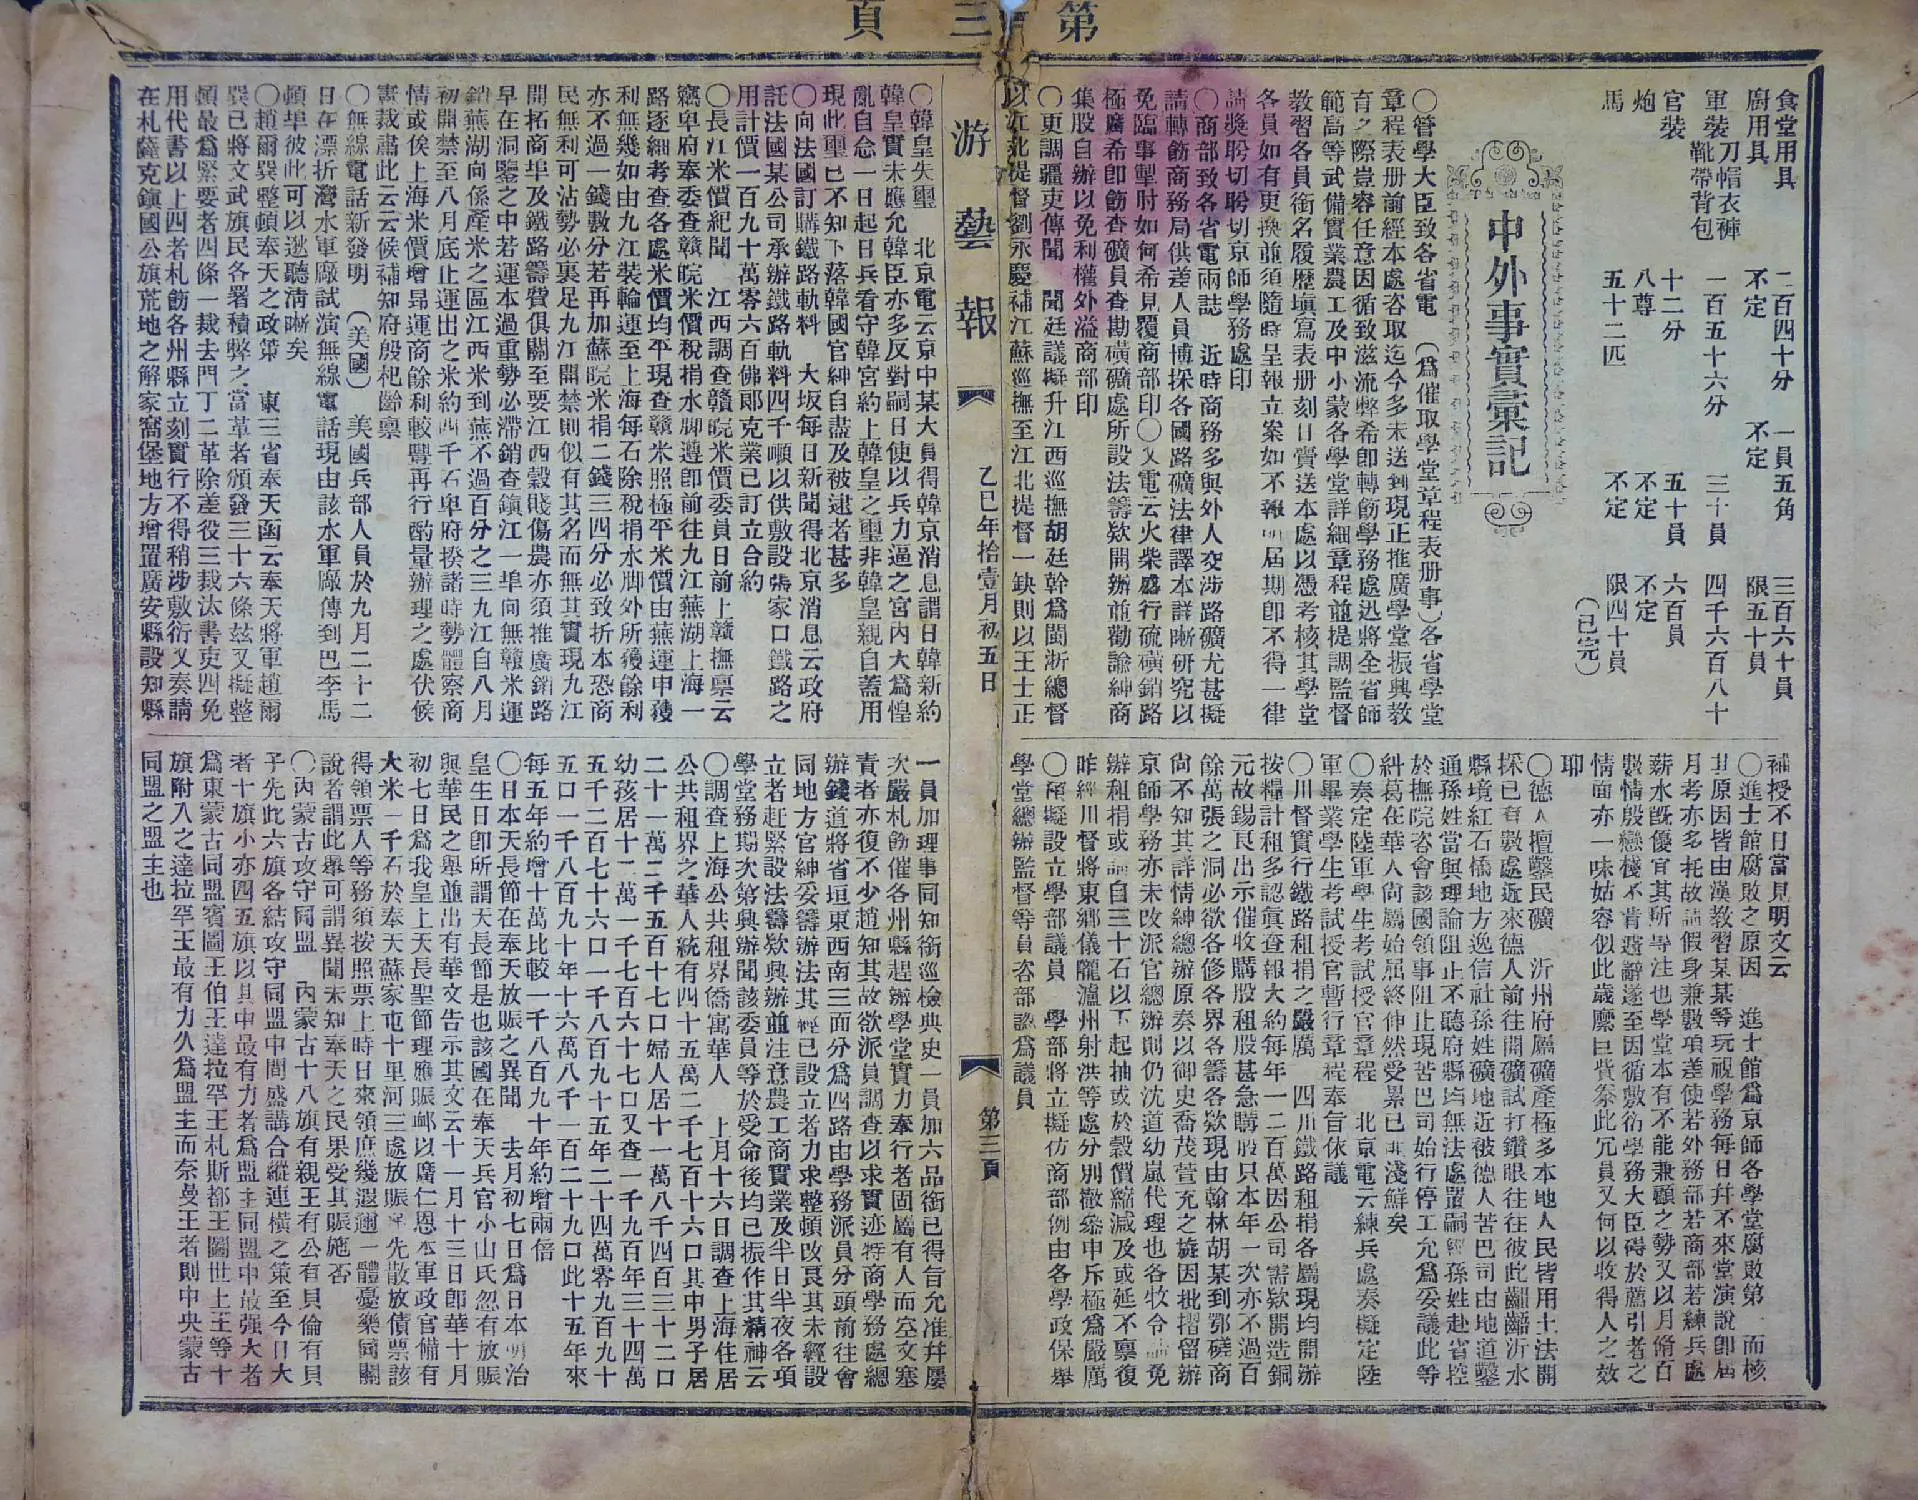 第三頁
食堂用具　二百四十分　一員五角　三百六十員
廚用具　不定　不定　限五十員
軍裝刀帽衣褲靴帶背包　一百五十六分　三十員　四千六百八十
官裝　十二分　五十員　六百員
炮　八尊　不定　不定
馬　五十二匹　不定　限四十員
（已完）
中外事實彙記
〇管學大臣致各省電　（爲催取學堂章程表册事）各省學堂
章程表册前經本處咨取迄今多未送到現正推廣學堂振興教
育之際豈容任意因循致滋流弊希即轉飭學務處迅將全省師
範高等武備實業農工及中小蒙各學堂詳細章程並提調監督
教習各員銜名履歷塡寫表册刻日賣送本處以憑考核其學堂
各員如有更換並須隨時呈報立案如不報　屆期即不得一律
請獎聆切切聆切京師學務處印
〇商部致各省電兩誌　近時商務多與外人交涉路礦尤甚擬
請轉飭商務局供差人員博採各國路礦法律譯本詳晰研究以
免臨事掣肘如何希見覆商部印〇又電云火柴盛行硫磺銷路
極廣希即飭查礦員查勘磺礦處所設法籌欵開辦並勸諭紳商
集股自辦以免利權外溢商部印
〇更調疆吏傳聞　聞廷議擬升江西巡撫胡廷幹爲閩浙總督
以江北提督劉永慶補江蘇巡撫至江北提督一缺則以王士正
補授不日當見明文云
〇進士館腐敗之原因　進士館爲京師各學堂腐敗第　而核
其原因皆由漢教習某某等玩視學務每日幷不來堂演說即屆
月考亦多托故請假身兼數項差使若外務部若商部若練兵處
薪水旣優宜其所專注也學堂本有不能兼顧之勢又以月脩百
數情殷戀棧不肯遽辭遂至因循敷衍學務大臣碍於薦引者之
情面亦一味姑容似此歲縻巨貲豢此冗員又何以收得人之效
耶
〇德人擅鑿民礦　沂州府屬礦產極多本地人民皆用土法開
採已有數處近來德人前往開礦試打鑽眼往往彼此齟齬沂水
縣境紅石橋地方逸信社孫姓礦地近被德人苦巴司由地道鑿
通孫姓當與理論阻止不聽府縣均無法處置嗣經孫姓赴省控
於撫院咨會該國領事阻止現苦巴司始行停工允爲妥議此等
糾葛在華人尙屬始屈終伸然受累已非淺鮮矣
〇奏定陸軍學生考試授官章程　北京電云練兵處奏擬定陸
軍畢業學生考試授官暫行章程奉旨依議
〇川督實行鐵路租捐之嚴厲　四川鐵路租捐各屬現均開辦
按糧計租多認眞查報大約每年一二百萬因公司需欵開造銅
元故錫良出示催收購股租股甚急購股只本年一次亦不過百
餘萬張之洞必欲各修各界各籌各欵現由翰林胡某到鄂磋商
尙不知其詳情紳總辦原奏以御史喬茂萱充之旋因批摺留辦
京師學務亦未改派官總辦則仍沈道幼嵐代理也各牧令請免
辦租捐或請自三十石以下起抽或於穀價縮減及或延不稟復
昨經川督將東鄉儀隴瀘州射洪等處分別撤參申斥極爲嚴厲
〇預擬設立學部議員　學部將立擬仿商部例由各學政保舉
學堂總辦監督等員咨部認爲議員
游藝報　乙巳年拾壹月初五日　第三頁
〇韓皇失璽　北京電云京中某大員得韓京消息謂日韓新約
韓皇實未應允韓臣亦多反對嗣日使以兵力逼之宮內大爲惶
亂自念一日起日兵看守韓宮約上韓皇之璽非韓皇親自蓋用
現此璽已不知下落韓國官紳自盡及被逮者甚多
〇向法國訂購鐵路軌料　大坂每日新聞得北京消息云政府
託法國某公司承辦鐵路軌料四千噸以供敷設張家口鐵路之
用計價一百九十萬零六百佛郎克業已訂立合約
〇長江米價紀聞　江西調查贛皖米價委員日前上贛撫稟云
竊卑府奉委查贛皖米價稅捐水脚遵即前往九江蕪湖上海一
路逐細考查各處米價均平現查贛米照極平米價由蕪運申獲
利無幾如由九江裝輪運至上海每石除稅捐水脚外所獲餘利
亦不過一錢數分若再加蘇皖米捐二錢三四分必致折本恐商
民無利可沾勢必裹足九江開禁則似有其名而無其實現九江
開拓商埠及鐵路籌費俱關至要江西穀賤傷農亦須推廣銷路
早在洞鑒之中若運本過重勢必滯銷查鎮江一埠向無贛米運
銷蕪湖向係產米之區江西米到蕪不過百分之三九江自八月
初開禁至八月底止運出之米約四千石卑府揆諸時勢體察商
情或俟上海米價增昻運商餘利較豐再行酌量辦理之處伏候
憲裁肅此云云候補知府殷杞齡稟
〇無線電話新發明　（美國）　美國兵部人員於九月二十二
日在漂折灣水軍廠試演無線電話現由該水軍廠傳到巴李馬
頓埠彼此可以逖聽淸晰矣
〇趙爾巽整頓奉天之政策　東三省奉天函云奉天將軍趙爾
巽已將文武旗民各署積弊之當革者頒發三十六條玆又擬整
頓最爲緊要者四條一裁去門丁二革除差役三裁汰書吏四免
用代書以上四者札飭各州縣立刻實行不得稍涉敷衍又奏請
在札薩克鎮國公旗荒地之解家窩堡地方增置廣安縣設知縣
一員加理事同知銜巡檢典史一員加六品銜已得旨允准幷屢
次嚴札飭催各州縣趕辦學堂實力奉行者固屬有人而空文塞
責者亦復不少趙知其故欲派員調查以求實迹特商學務處總
辦錢道將省垣東西南三面分爲四路由學務派員分頭前往會
同地方官紳妥籌辦法其經已設立者力求整頓改良其未經設
立者赶緊設法籌欵興辦並注意農工商實業及半日半夜各項
學堂務期次第興辦聞該委員等於受命後均已振作其精神云
〇調查上海公共租界僑寓華人　上月十六日調查上海住居
公共租界之華人統有四十五萬二千七百十六口其中男子居
二十一萬二千五百十七口婦人居十一萬八千四百三十二口
幼孩居十二萬一千七百六十七口又查一千九百年三十四萬
五千二百七十六口一千八百九十五年二十四萬零九百九十
五口一千八百九十年十六萬八千一百二十九口此十五年來
每五年約增十萬比較一千八百九十年約增兩倍
〇日本天長節在奉天放賑之異聞　去月初七日爲日本明治
皇生日即所謂天長節是也該國在奉天兵官小山氏忽有放賑
與華民之舉並出有華文告示其文云十一月十三日即華十月
初七日爲我皇上天長聖節理應賑邮以廣仁恩本軍政官備有
大米一千石於奉天蘇家屯十里河三處放賑　先散放債票該
得領票人等務須按照票上時日來領庶幾遐邇一體憂樂同關
說者謂此舉可謂異聞未知奉天之民果受其賑施否
〇內蒙古攻守同盟　內蒙古十八旗有親王有公有貝倫有貝
子先此六旗各結攻守同盟中間盛講合縱連橫之策至今日大
者十旗小亦四五旗以其中最有力者爲盟主同盟中最强大者
爲東蒙古同盟賓圖王伯王達拉罕王札斯都王圖世土王等十
旗附入之達拉罕王最有力久爲盟主而奈曼王者則中央蒙古
同盟之盟主也